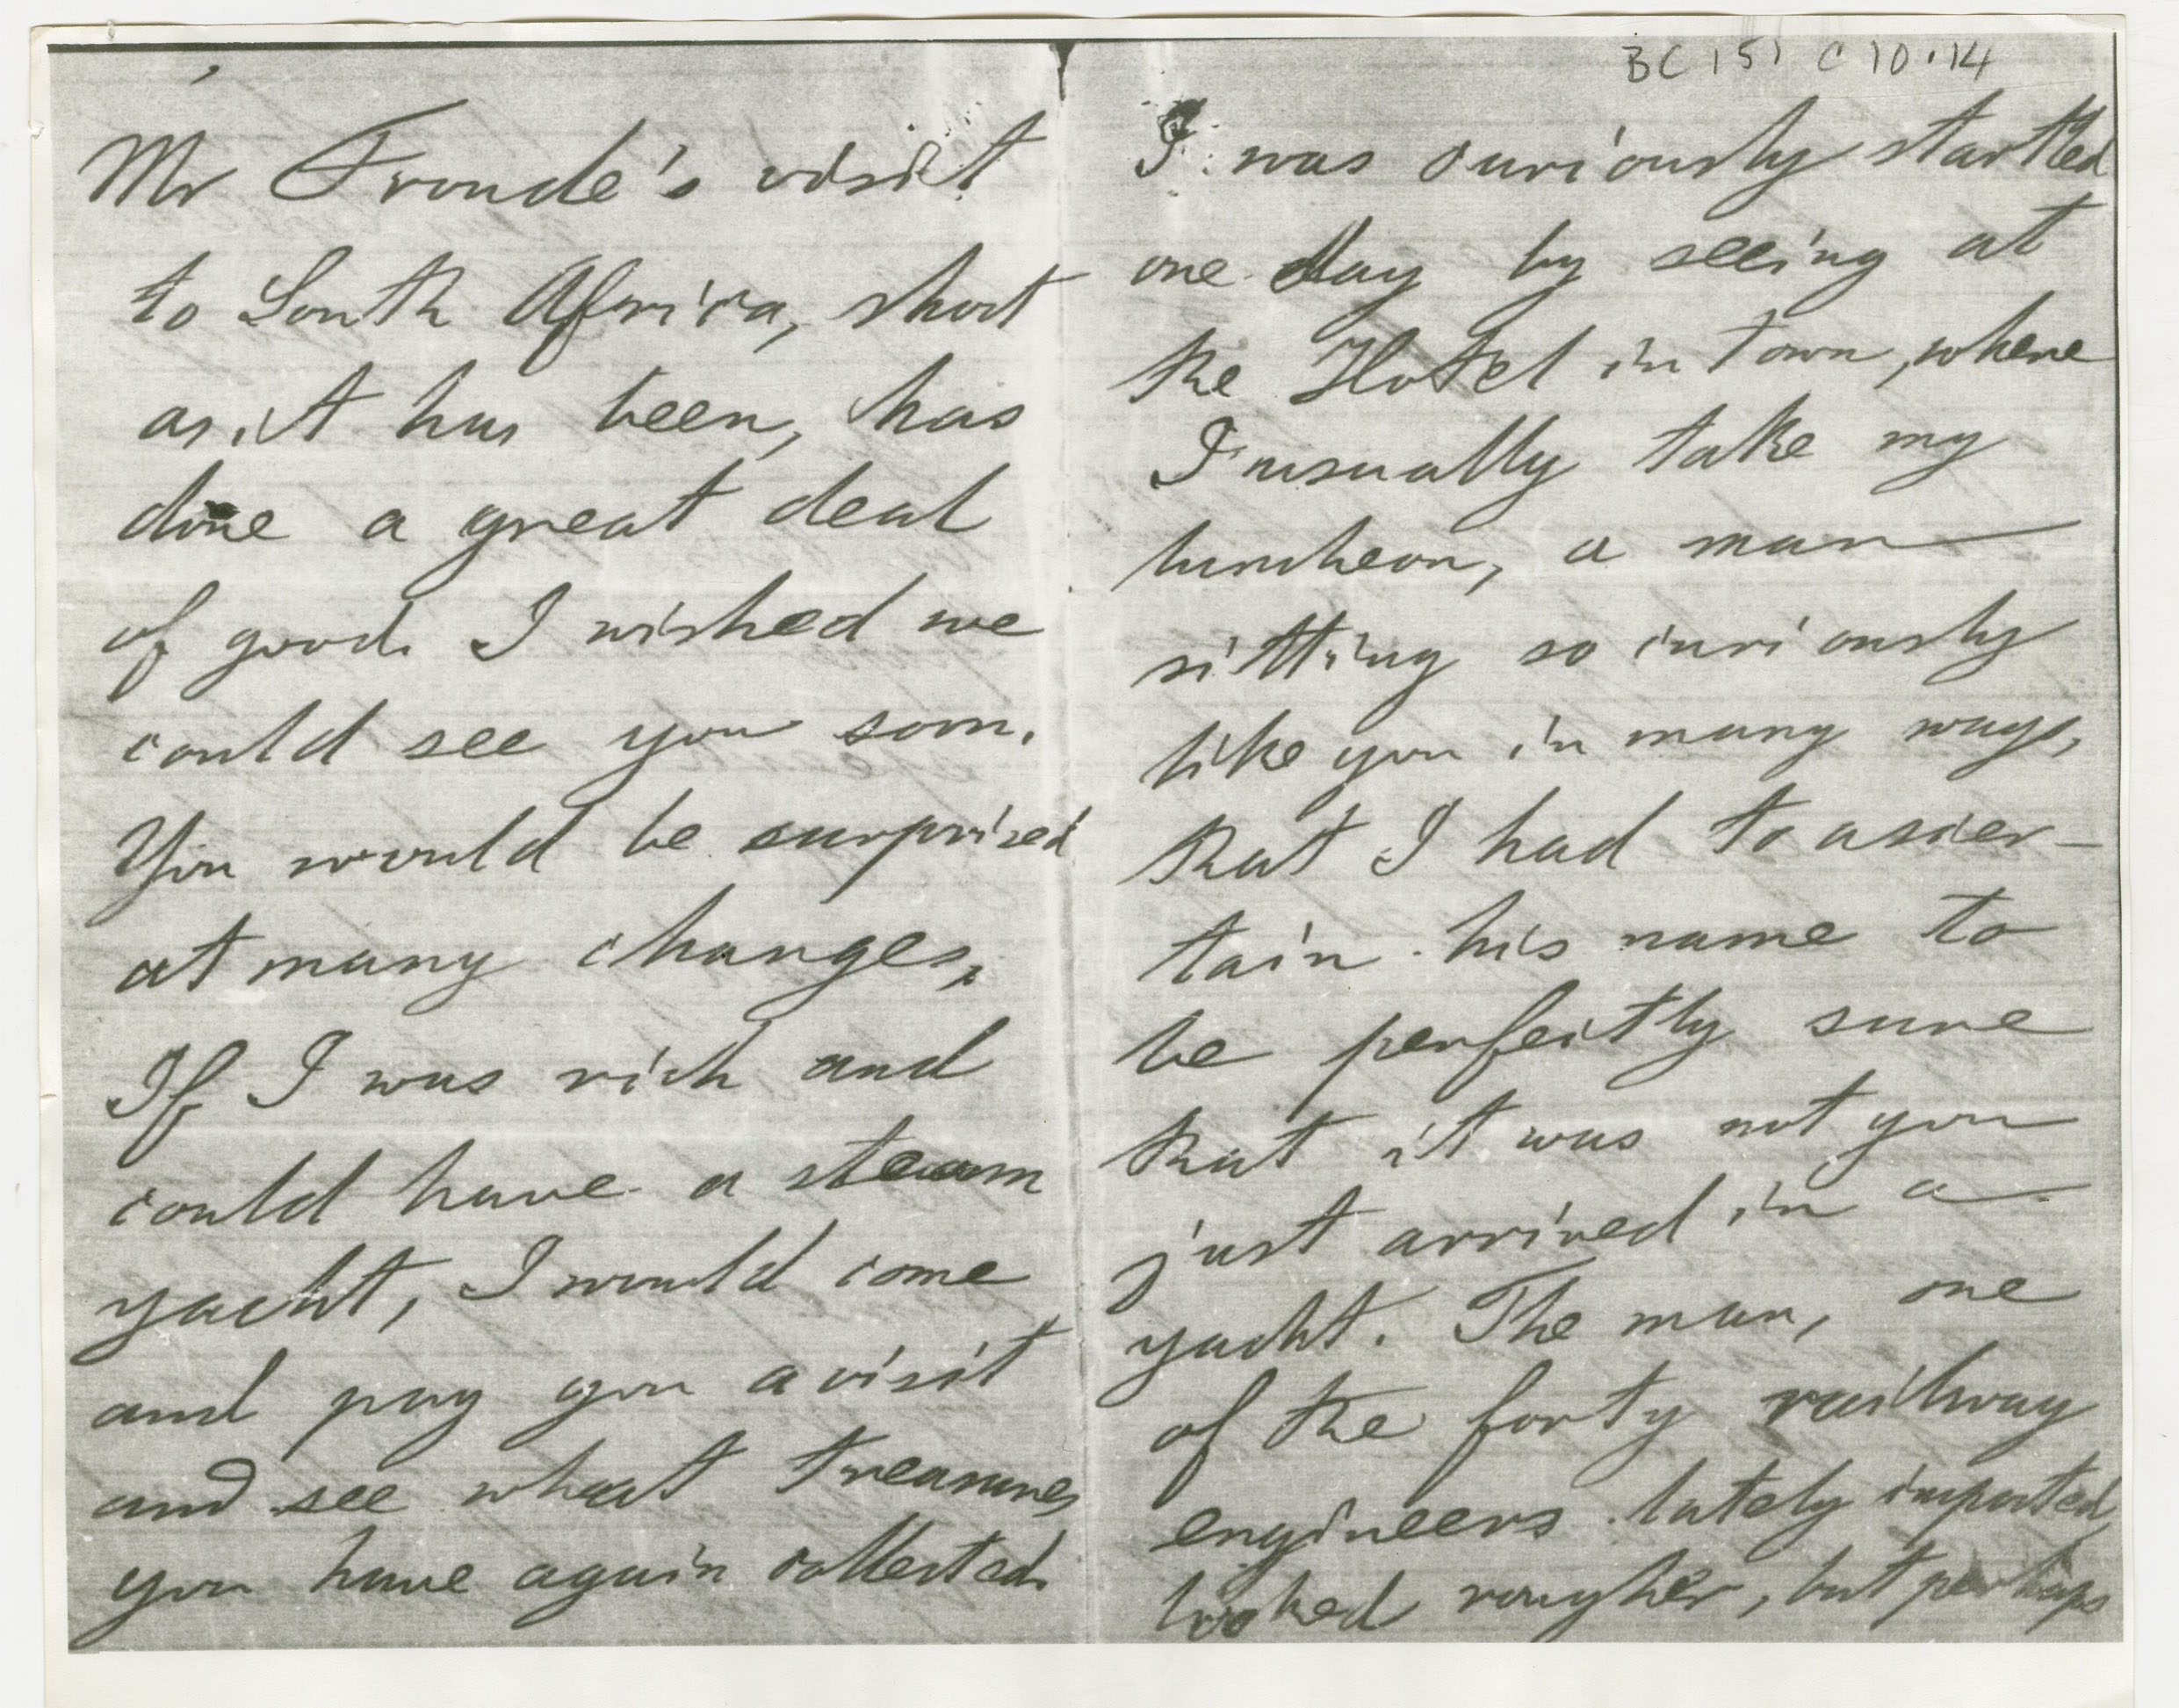 BC 151 C10.14
Mr Froude's visit
to South Africa, short
as it has been, has
done a great deal
of good. I wished we
could see you soon.
You would be surprised
at many changes.
If I was rich and
could have a steam
yacht, I would come
and pay you a visit
and see what treasures
you have again collected.
I was curiously startled
one day by seeing at
the Hotel in town, where
I usually take my
luncheon, a man
sitting so curiously
like you in many ways,
that I had to ascer-
tain his name to
be perfectly sure
that it was not you
just arrived in a
yacht. The man, one
of the forty railway
engineers lately imported,
looked rougher, but perhaps